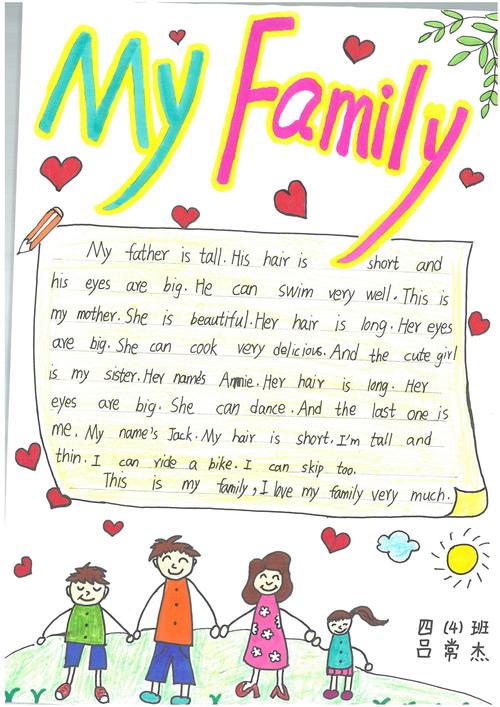 My Family
My father is tall. His hair is short and
his eyes are big. He can swim very well. This is
my mother. She is beautiful. Her hair is long. Her eyes
are big. She can cook very delicious. And the cute girl
is my sister. Her name's Annie. Her hair is long. Her
eyes are big. She can dance. And the last one is
me. My name's Jack. My hair is short. I'm tall and
thin. I can ride a bike. I can skip too.
This is my family, I love my family very much.
四 (4) 班
吕常杰